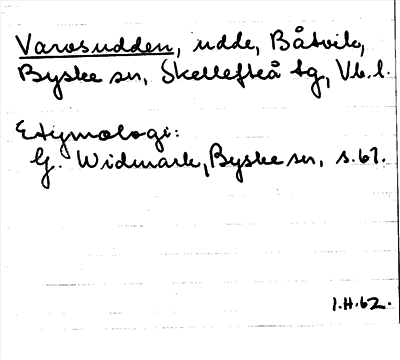 Varosudden, udde, Båtvik,
Byske sn, Skellefteå tg, Vb.l.
Etymologi:
G. Widmark, Byske sn, s.61.
I.H.62.